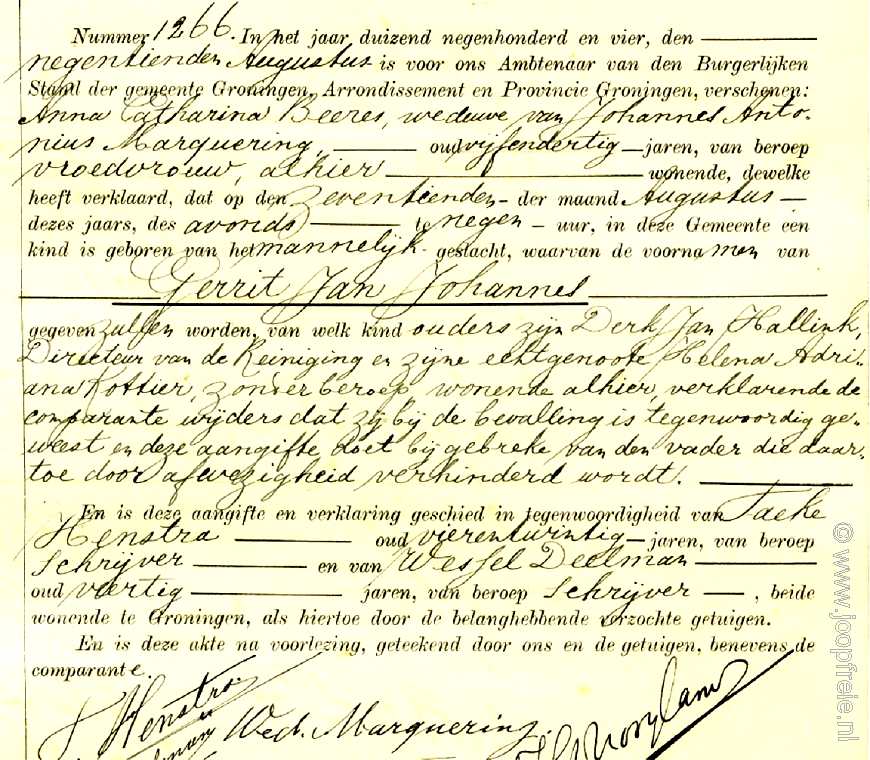 Nummer 1266. In het jaar duizend negenhonderd en vier, den
negentienden Augustus is voor ons Ambtenaar van den Burgerlijken
Stand der gemeente Groningen, Arrondissement en Provincie Groningen, verschenen:
Anna Catharina Beeres, weduwe van Johannes Anto-
nius Marquering, oud vijfendertig jaren, van beroep
vroedvrouw, alhier wonende, dewelke
heeft verklaard, dat op den zeventienden der maand Augustus
dezes jaars, des avonds te negen uur, in deze Gemeente een
kind is geboren van het mannelijk geslacht, waarvan de voornamen van
Gerrit Jan Johannes
gegeven zullen worden, van welk kind ouders zijn Derk Jan Hallink,
Directeur van de Reiniging en zijne echtgenoote Helena Adri-
ana Kottier, zonder beroep, wonende alhier, verklarende de
comparante wijders dat zij bij de bevalling is tegenwoordig ge-
weest en deze aangifte doet bij gebreke van den vader die daar-
toe door afwezigheid verhinderd wordt.
En is deze aangifte en verklaring geschied in tegenwoordigheid van Taeke
Henstra oud vierentwintig jaren, van beroep
Schrijver en van Wessel Deelman
oud veertig jaren, van beroep Schrijver, beide
wonende te Groningen, als hiertoe door de belanghebbende verzochte getuigen.
En is deze akte na voorlezing, geteekend door ons en de getuigen, benevens de
comparante.
T Henstra
Wed. Marquering.
© www.joopfreie.nl